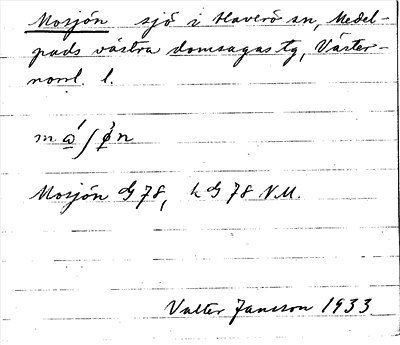 Mosjön sjö i Haverö sn, Medel-
pads västra domsagas tg, Väster-
norrl. l.
Mosjön G 78, k G 78 N.M.
Valter Jansson 1933.